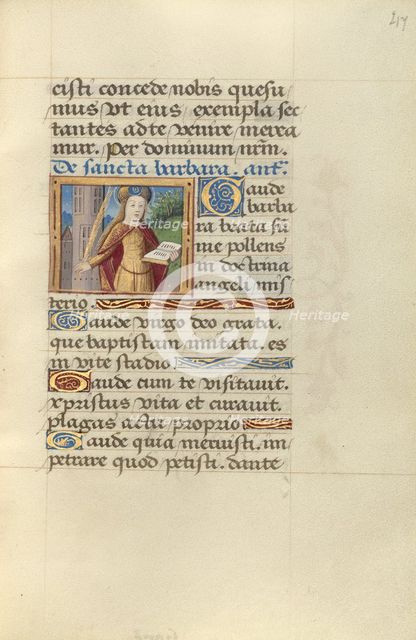 217
cisti concede nobis quesu
mus vt eius exempla sec
tantes ad te venire merea
mur. Per dominum nrm.
De sancta barbara. ant.
Gaude
barba
ra beata sũ
me pollens
in doctrina
angeli mis
terio.
Gaude virgo deo grata.
que baptistam imitata. es
in vite stadio.
Gaude cum te visitauit.
xpristus vita et curauit
plagas actu proprio
Gaude quia meruisti. im
petrare quod petisti. dante
Heritage Heritage
Heritage
Heritage Heritage